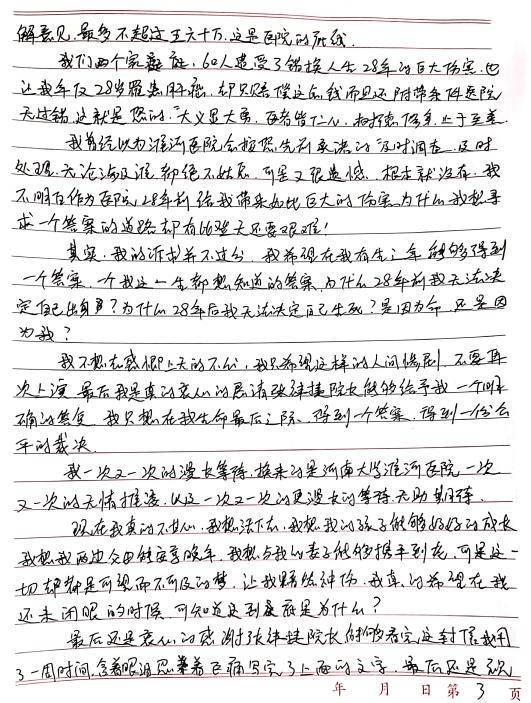 解意见,最多不超过五六十万,这是医院的底线。
我们两个家庭,60人遭受了错换人生28年的巨大伤害,也
让我年仅28岁罹患肝癌,却只赔偿这点钱而且还附带条件医院
无过错,这就是您的:大义显大爱,医者皆仁心,
我曾经以为淮河医院会按您先前承诺的及时调查,及时
处理,无论涉及谁,都绝不姑息,可是又很遗憾,根本就没有,我
不明白作为医院28年前给我带来如此巨大的伤害,为什么我想寻
求一个答案的道路却有比登天还要艰难!
其实,我的诉求并不过分,我希望在我有生之年能够得到
一个答案,一个我这一生都想知道的答案,为什么28年前我无法决
定自己出身?为什么28年后我无法决定自己生死?是因为命,还是因
为我?
我不想去感慨上天的不公,我只希望这样的人间惨剧,不要再
次上演,最后我是真的衷心的恳请张祎捷院长能够给予我一个明
确的答复,我只想在我生命最后之际,得到一个答案,得到一份公
平的裁决。
我一次又一次的漫长等待,换来的是河南大学淮河医院一次
又一次的无情推诿,以及一次又一次的更漫长的等待,无助,期待。
现在我真的不甘心,我想活下去,我想我的孩子能够好好的成长
我想我两边父母能安享晚年,我想与我的妻子能够携手到老,可是这一
切却都是可望而不可及的梦,让我黯然神伤,我真的希望在我
还未闭眼的时候,可知道这到底是为什么?
最后还是衷心的感谢张祎捷院长能够看完这封信,我用
了一周时间,含着眼泪忍着巨痛写完了上面的文字,最后还是
年 月 日第 3 页